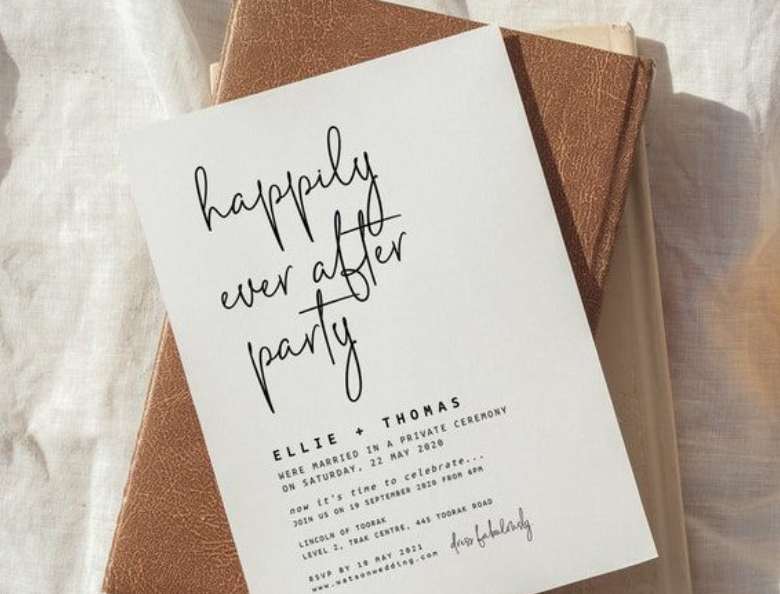 happily
ever after
party
ELLIE + THOMAS
WERE MARRIED IN A PRIVATE CEREMONY
ON SATURDAY, 22 MAY 2020
now it's time to celebrate...
JOIN US ON 19 SEPTEMBER 2020 FROM 6PM
LINCOLN OF TOORAK
LEVEL 2, TRAK CENTRE, 445 TOORAK ROAD
dress fabulously
RSVP BY 10 MAY 2021
www.watsonwedding.com